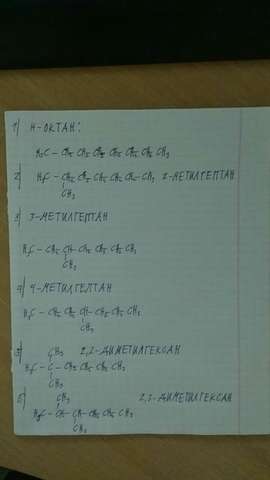 1) Н-ОКТАН:
H3C - CH2 CH2 CH2 CH2 CH2 CH2 CH3
2) H3C - CH CH2 CH2 CH2 CH2 - CH3 2-МЕТИЛГЕПТАН
CH3
3) 3-МЕТИЛГЕПТАН
H3C - CH2 - CH - CH2 CH2 CH2 CH3
CH3
4) 4-МЕТИЛГЕПТАН
H3C - CH2 CH2 CH - CH2 CH2 CH3
CH3
5) CH3 2,2-ДИМЕТИЛГЕКСАН
H3C - C - CH2 CH2 CH2 CH3
CH3
6) CH3 2,3-ДИМЕТИЛГЕКСАН
H3C - CH - CH - CH2 CH2 CH3
CH3